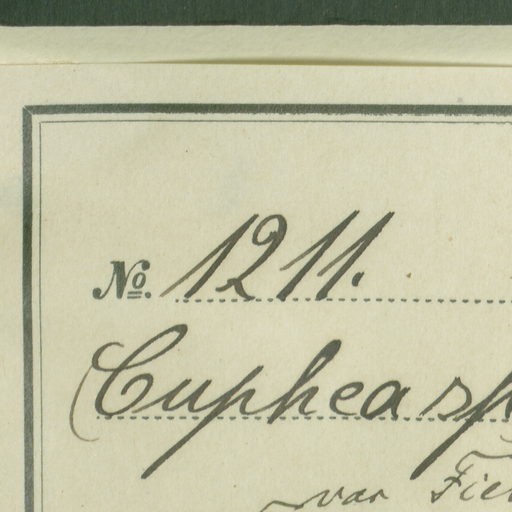 No. 1211.
Cuphea sp
var